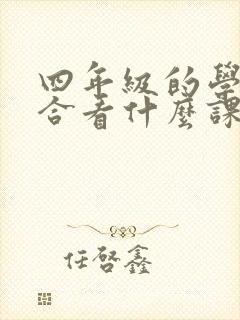 四年級的學
合看什麼課
任啓鑫